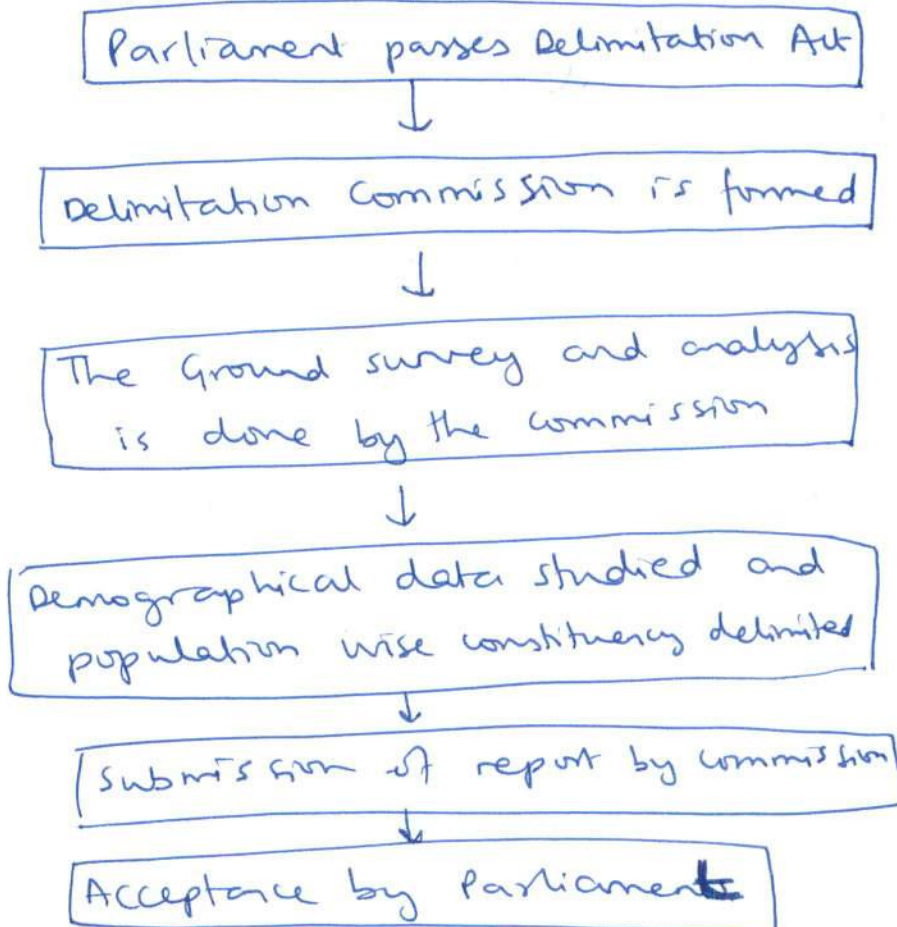 Parliament passes Delimitation Act
Delimitation Commission is formed
The Ground survey and analysis
is done by the commission
Demographical data studied and
population wise constituency delimited
Submission of report by commission
Acceptance by Parliament